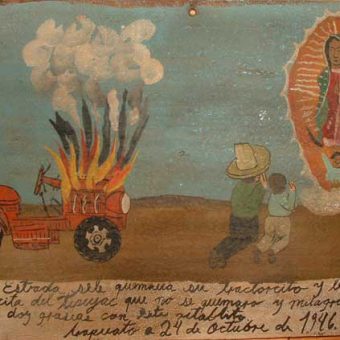 Estrada, sele quemava su tractorcito y le
cita del tepeyac que no se quemara y milagro
doy grasias con este retablito.
a 24 de Octubre de 1946.